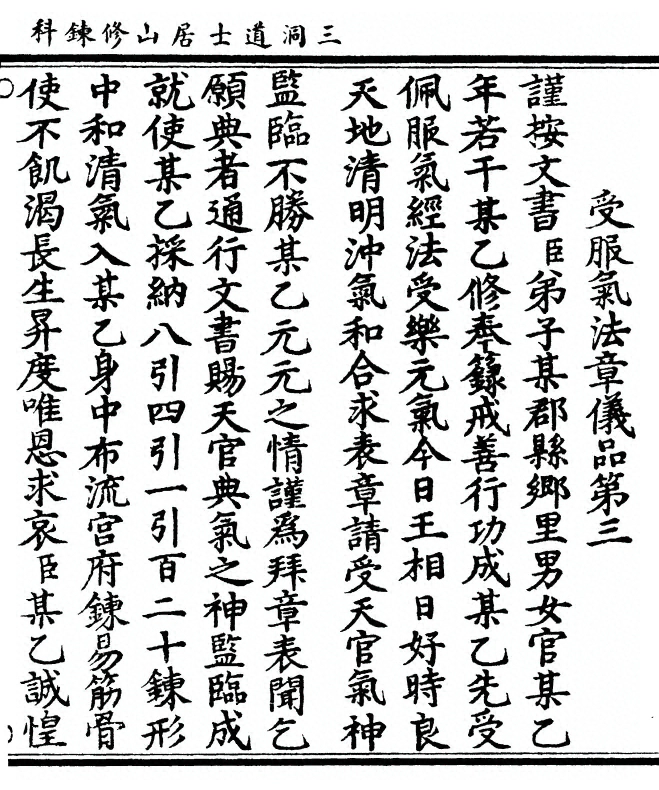 三洞道士居山修鍊科
受服氣法章儀品第三
謹按文書臣弟子某郡縣鄉里男女官某乙
年若干某乙修奉籙戒善行功成某乙先受
佩服氣經法受樂元氣今日王相日好時良
天地清明沖氣和合求表章請受天官氣神
監臨不勝某乙元元之情謹為拜章表聞乞
願典者通行文書賜天官典氣之神監臨成
就使某乙採納八引四引一引百二十鍊形
中和清氣入某乙身中布流宮府鍊易筋骨
使不飢渴長生昇度唯恩求哀臣某乙誠惶